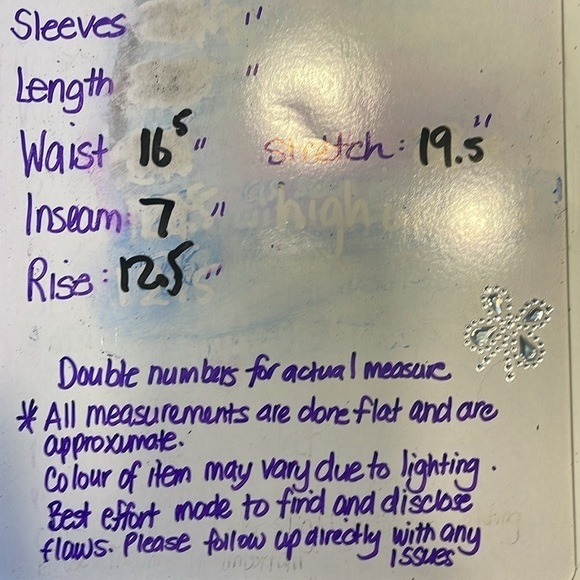 Sleeves "
Length "
Waist 16⁵ " Stretch: 19.5"
Inseam: 7 "
Rise: 12.5 "
Double numbers for actual measure
* All measurements are done flat and are
approximate.
Colour of item may vary due to lighting.
Best effort made to find and disclose
flaws. Please follow up directly with any
issues